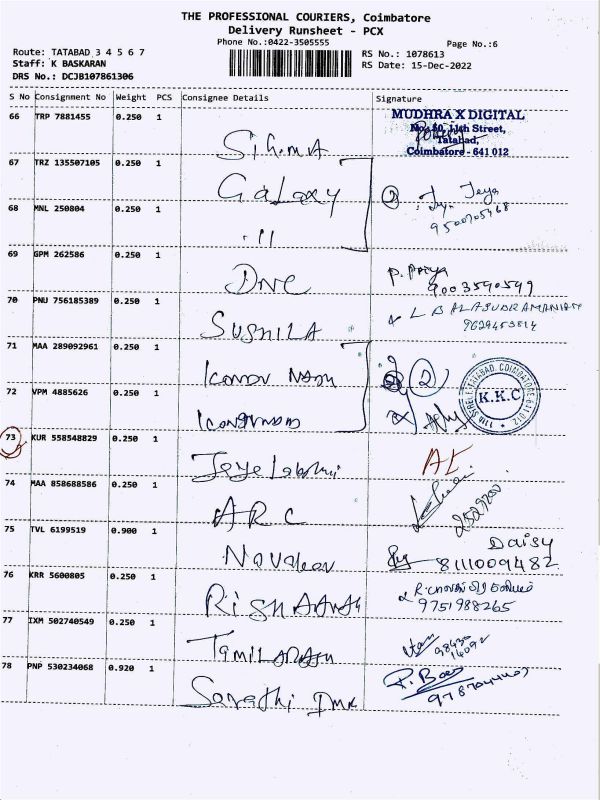 THE PROFESSIONAL COURIERS, Coimbatore
Delivery Runsheet - PCX
Phone No.:0422-3505555
Page No.:6
Route: TATABAD 3 4 5 6 7
Staff: K BASKARAN
DRS No.: DCJB107861306
RS No.: 1078613
RS Date: 15-Dec-2022
S No Consignment No Weight PCS Consignee Details Signature
66 TRP 7881455 0.250 1
MUDHRA X DIGITAL
No. 40, 11th Street,
Tatabad,
Coimbatore - 641 012
Sigma
67 TRZ 135507105 0.250 1
Galaxy
2 Jeya
68 MNL 250804 0.250 1
"
69 GPM 262586 0.250 1
DNC
P. Priya
9003590599
70 PNU 756185389 0.250 1
SUSHILA
L BALASUBRAMANIAM
71 MAA 289092961 0.250 1
2
72 VPM 4885626 0.250 1
K.K.C
11th STREET, TATABAD, COIMBATORE-641 012
73 KUR 558548829 0.250 1
Jeyelakshmi
74 MAA 858688586 0.250 1
ARC
75 TVL 6199519 0.900 1
Daisy
8111009482
76 KRR 5600805 0.250 1
9751988265
77 IXM 502740549 0.250 1
Tamilarasu
78 PNP 530234068 0.920 1
Sarathi